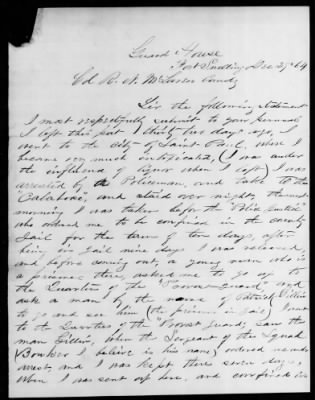 Guard House
Fort Snelling Dec 27th 64
Col R. N. McLaren Comdg
Sir the following statement
I most respectfully submit to your perusal
I left this post thirty two days ago, I
went to the city of Saint Paul, where I
became very much intoxicated, (I was under
the influence of liquor when I left) I was
arrested by a Policeman, and taken to the
Calaboose, and staid over night, the next
morning I was taken before the "Police Justice"
who ordered me to be confined in the county
Jail for the term of ten days, after
being in Jail nine days I was released,
and before coming out, a young man who is
a prisoner there, asked me to go up to
the Quarters of the "Provost Guard," and
ask a man by the name of Patrick
to go and see him (the prisoner in Jail) I went
to the Quarters of the Provost Guard, saw the
man, when the Sergeant of the Squad
(Bowker I believe is his name) ordered me under
arrest, and I was kept there seven days,
when I was sent up here, and confined in